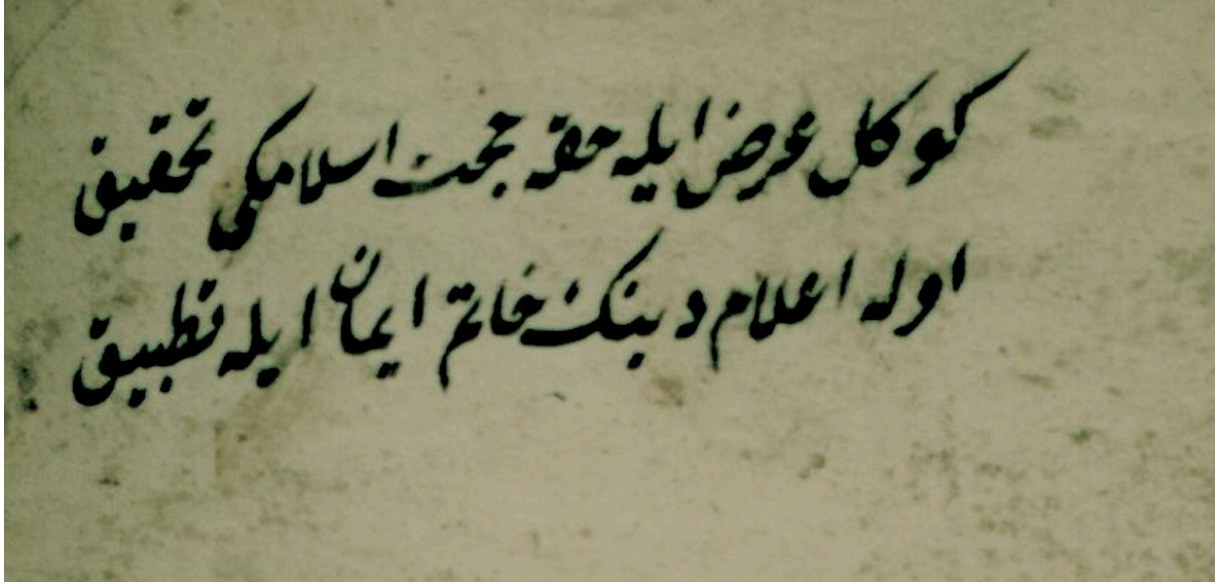 كوكل عرض ايله حقه حجت اسلامكى تحقيق
اوله اعلام دينك خاتم ايمان ايله تطبيق